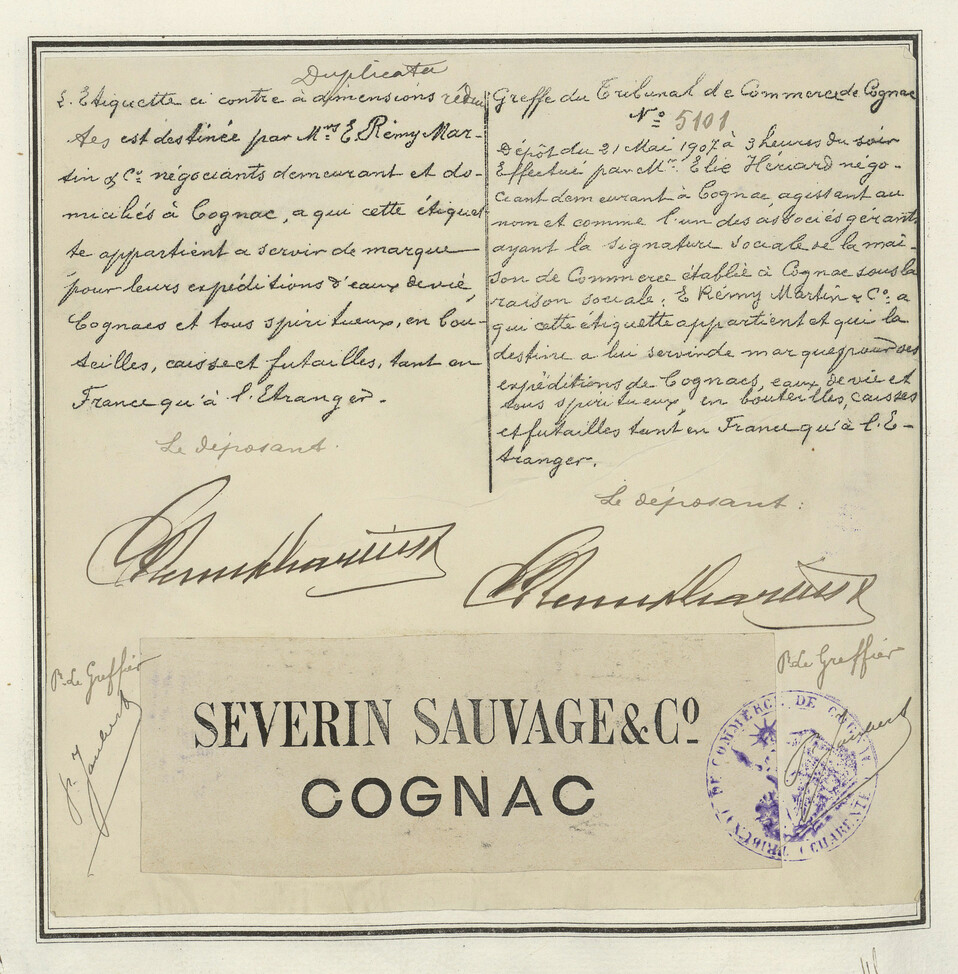 Duplicata
L'Etiquette ci contre à dimensions rédui
tes est destinée par Mrs E. Rémy Mar-
tin & Cie négociants demeurant et do-
miciliés à Cognac, a qui cette étiquet
te appartient a servir de marque
pour leurs expéditions d'eaux de vie,
Cognacs et tous spiritueux, en bou-
teilles, caisse et futailles, tant en
France qu'à l'Etranger.
Le déposant.
Greffe du Tribunal de Commerce de Cognac
No 5101
Dépôt du 21 Mai 1907 à 3 heures du soir
Effectué par Mr. Elie Hériard négo-
ciant demeurant à Cognac, agissant au
nom et comme l'un des associés gérants
ayant la signature sociale de la mai-
son de Commerce établie à Cognac sous la
raison sociale: E Rémy Martin & Co. a
qui cette étiquette appartient et qui la
destine a lui servir de marque pour ses
expéditions de Cognacs, eaux de vie et
tous spiritueux, en bouteilles, caisses
et futailles tant en France qu'à l'E-
tranger.
Le déposant:
E Remy Martin &
E Remy Martin &
P. Le Greffier
P. Le Greffier
SEVERIN SAUVAGE & Co
COGNAC
TRIBUNAL DE COMMERCE DE COGNAC (CHARENTE)